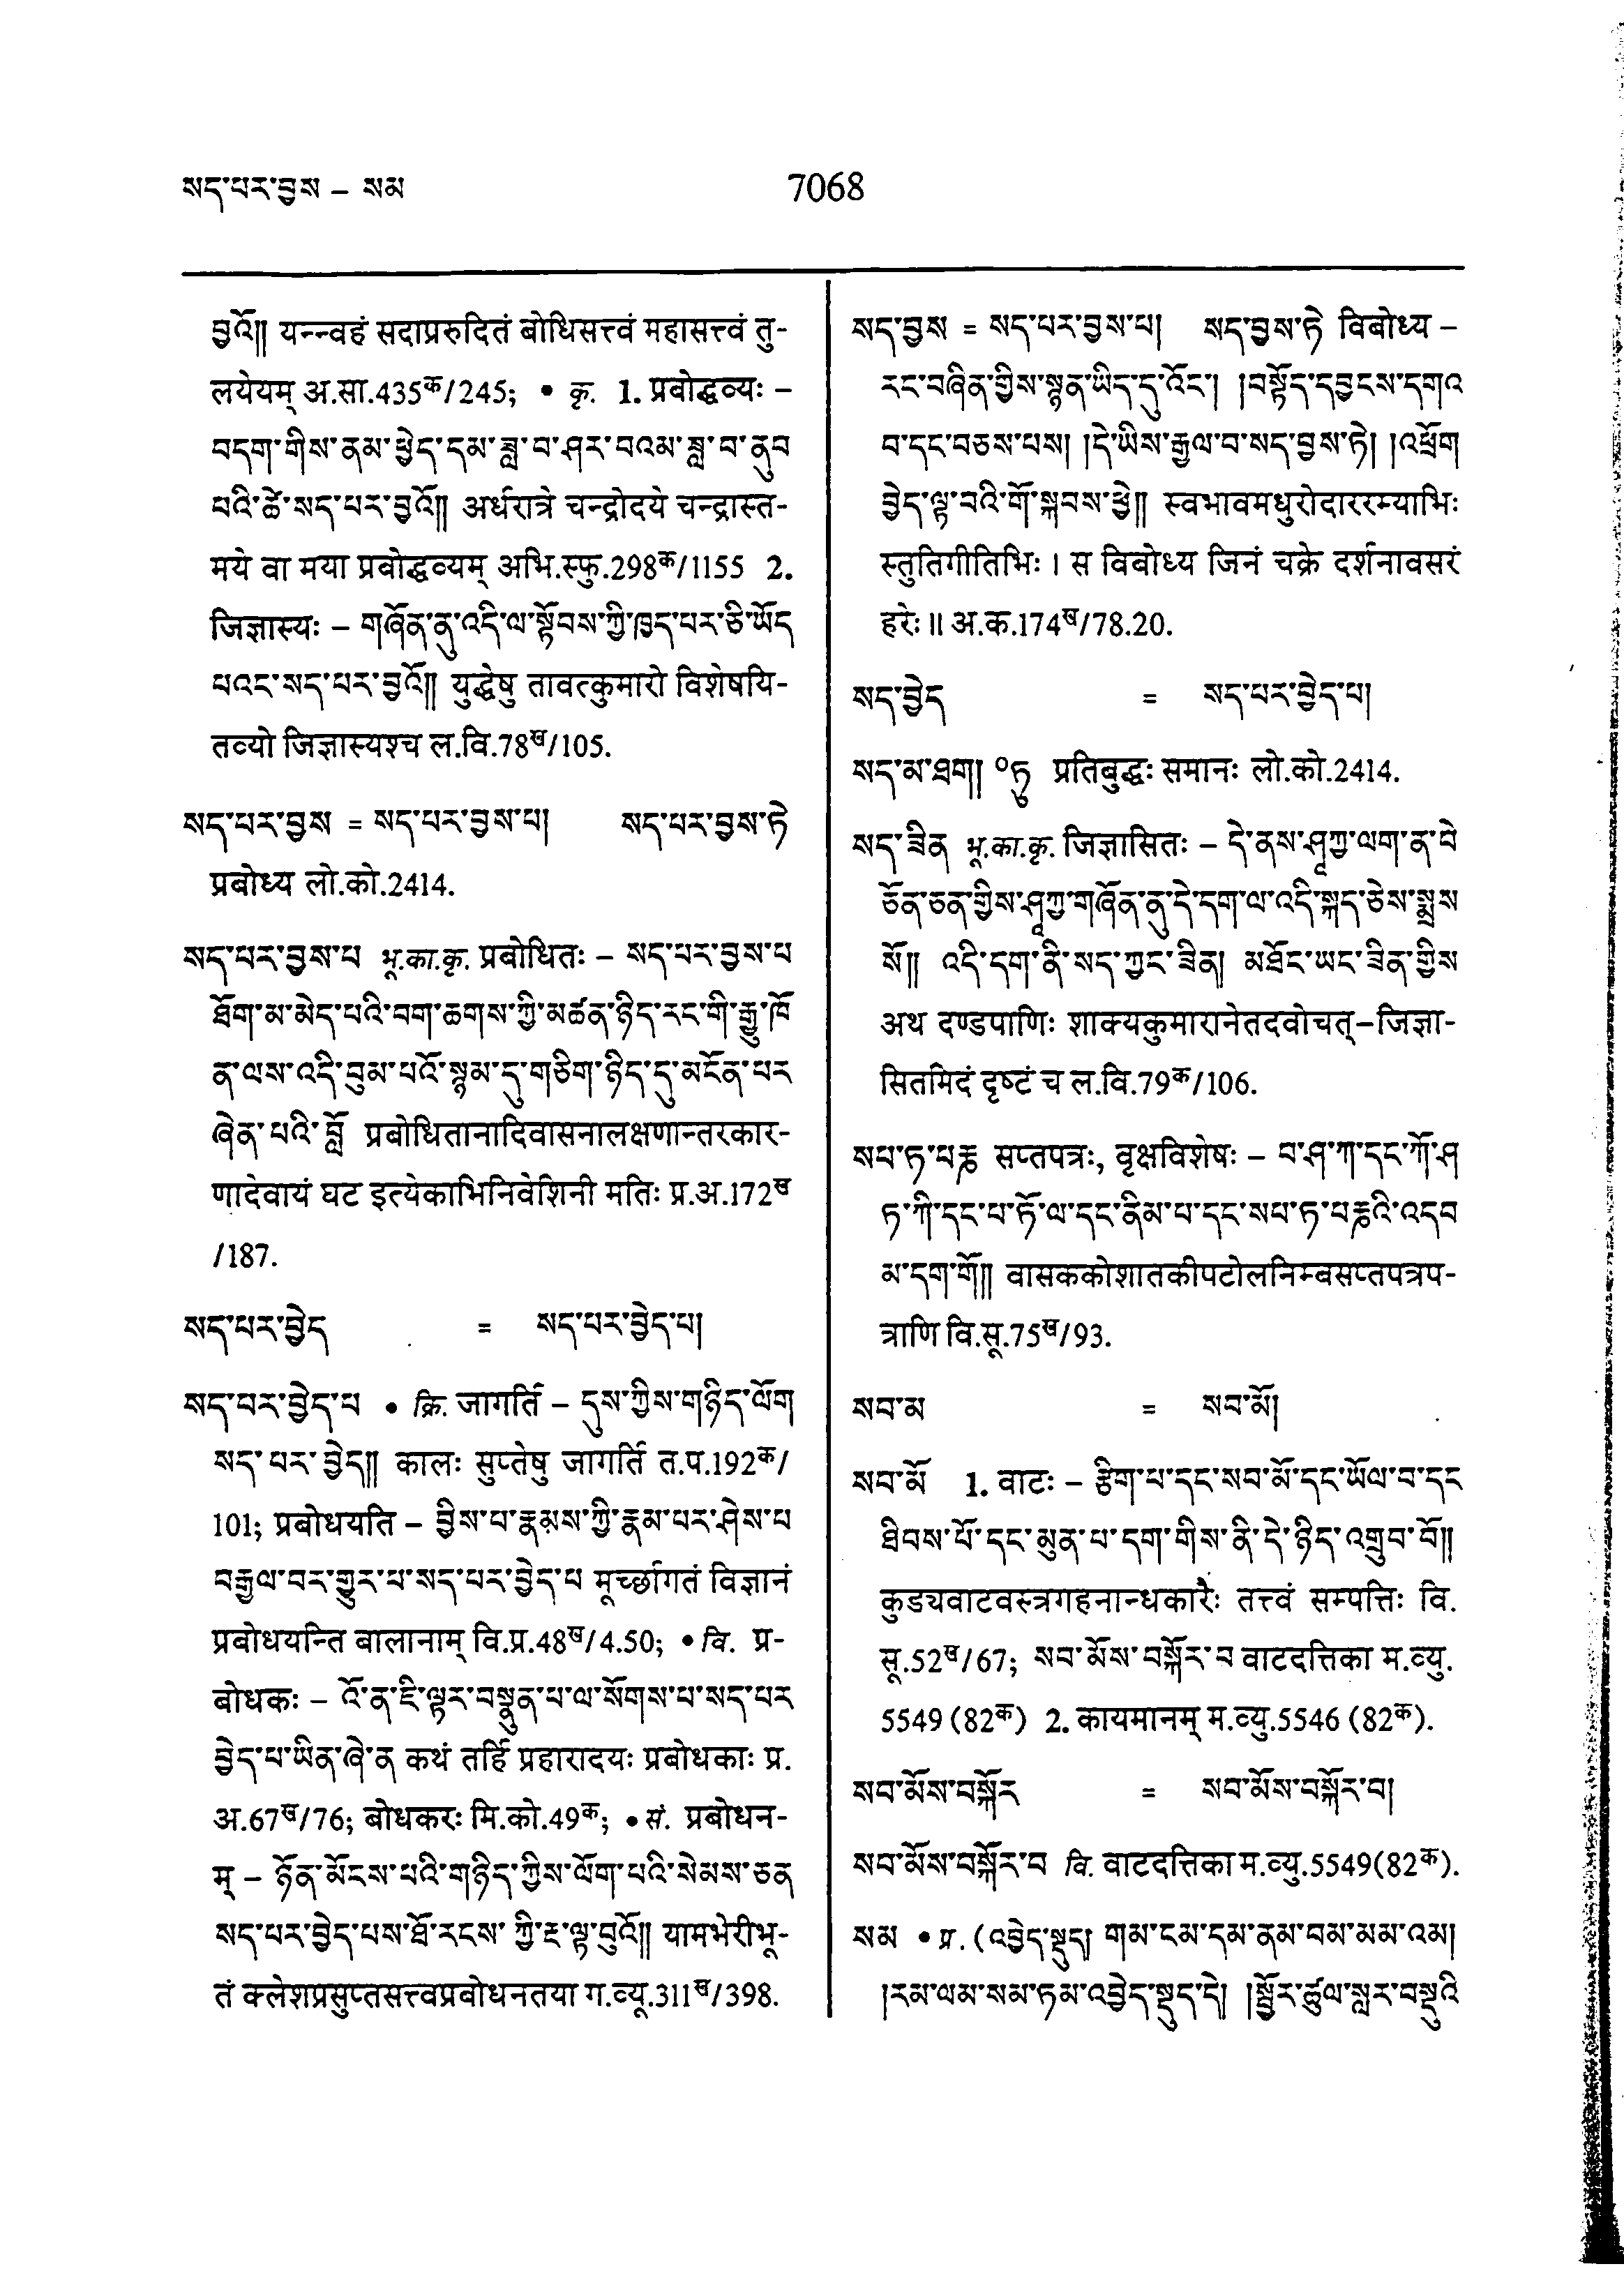 སད་པར་བྱས – སམ
7068
བྱའོ།། यन्न्वहं सदाप्ररुदितं बोधिसत्त्वं महासत्त्वं तु-
लयेयम् अ.सा.435क/245; • कृ. 1. प्रबोद्धव्यः –
བདག་གིས་ནམ་ཕྱེད་དམ་ཟླ་བ་ཤར་བའམ་ཟླ་བ་ནུབ
བའི་ཚེ་སད་པར་བྱའོ།། अर्धरात्रे चन्द्रोदये चन्द्रास्त-
मये वा मया प्रबोद्धव्यम् अभि.स्फु.298क/1155 2.
जिज्ञास्यः – གཞོན་ནུ་འདི་ལ་སྟོབས་ཀྱི་ཁྱད་པར་ཅི་ཡོད
པའང་སད་པར་བྱའོ།། युद्धेषु तावत्कुमारो विशेषयि-
तव्यो जिज्ञास्यश्च ल.वि.78ख/105.
སད་པར་བྱས = སད་པར་བྱས་པ། སད་པར་བྱས་ཏེ
प्रबोध्य लो.को.2414.
སད་པར་བྱས་པ भू.का.कृ. प्रबोधितः – སད་པར་བྱས་པ
ཐོག་མ་མེད་པའི་བག་ཆགས་ཀྱི་མཚན་ཉིད་རང་གི་རྒྱུ་ཁོ
ན་ལས་འདི་བུམ་པའོ་སྙམ་དུ་གཅིག་ཉིད་དུ་མངོན་པར
ཞེན་པའི་བློ प्रबोधितानादिवासनालक्षणान्तरकार-
णादेवायं घट इत्येकाभिनिवेशिनी मतिः प्र.अ.172ख
/187.
སད་པར་བྱེད = སད་པར་བྱེད་པ།
སད་པར་བྱེད་པ • क्रि. जागर्ति – དུས་ཀྱིས་གཉིད་ལོག
སད་པར་བྱེད།། कालः सुप्तेषु जागर्ति त.प.192क/
101; प्रबोधयति – བྱིས་པ་རྣམས་ཀྱི་རྣམ་པར་ཤེས་པ
བརྒྱལ་བར་གྱུར་པ་སད་པར་བྱེད་པ मूर्च्छागतं विज्ञानं
प्रबोधयन्ति बालानाम् वि.प्र.48ख/4.50; • वि. प्र-
बोधकः – འོ་ན་ཇི་ལྟར་བསྣུན་པ་ལ་སོགས་པ་སད་པར
བྱེད་པ་ཡིན་ཞེ་ན कथं तर्हि प्रहारादयः प्रबोधकाः प्र.
अ.67ख/76; बोधकरः मि.को.49क; • सं. प्रबोधन-
म् – ཉོན་མོངས་པའི་གཉིད་ཀྱིས་ལོག་པའི་སེམས་ཅན
སད་པར་བྱེད་པས་ཐོ་རངས་ཀྱི་རྔ་ལྟ་བུའོ།། यामभेरीभू-
तं क्लेशप्रसुप्तसत्त्वप्रबोधनतया ग.व्यू.311ख/398.
སད་བྱས = སད་པར་བྱས་པ། སད་བྱས་ཏེ विबोध्य –
རང་བཞིན་གྱིས་སྙན་ཡིད་དུ་འོང་། །བསྟོད་དབྱངས་དགའ
བ་དང་བཅས་པས། །དེ་ཡིས་རྒྱལ་བ་སད་བྱས་ཏེ། །འཕྲོག
བྱེད་ལྟ་བའི་གོ་སྐབས་ཕྱེ།། स्वभावमधुरोदाररम्याभिः
स्तुतिगीतिभिः । स विबोध्य जिनं चक्रे दर्शनावसरं
हरेः ॥ अ.क.174ख/78.20.
སད་བྱེད = སད་པར་བྱེད་པ།
སད་མ་ཐག། ०ཏུ प्रतिबुद्धः समानः लो.को.2414.
སད་ཟིན भू.का.कृ. जिज्ञासितः – དེ་ནས་ཤཱཀྱ་ལག་ན་བེ
ཅོན་ཅན་གྱིས་ཤཱཀྱ་གཞོན་ནུ་དེ་དག་ལ་འདི་སྐད་ཅེས་སྨྲས
སོ།། འདི་དག་ནི་སད་ཀྱང་ཟིན། མཐོང་ཡང་ཟིན་གྱིས
अथ दण्डपाणिः शाक्यकुमारानेतदवोचत्–जिज्ञा-
सितमिदं दृष्टं च ल.वि.79क/106.
སཔ་ཏ་པརྞ सप्तपत्रः, वृक्षविशेषः – བ་ཤ་ཀ་དང་ཀོ་ཤ
ཏ་ཀི་དང་པ་ཏོ་ལ་དང་ནིམ་པ་དང་སཔ་ཏ་པརྞའི་འདབ
མ་དག་གོ།། वासककोशातकीपटोलनिम्बसप्तपत्रप-
त्राणि वि.सू.75ख/93.
སབ་མ = སབ་མོ།
སབ་མོ 1. वाटः – རྩིག་པ་དང་སབ་མོ་དང་ཡོལ་བ་དང
ཐིབས་པོ་དང་མུན་པ་དག་གིས་ནི་དེ་ཉིད་འགྲུབ་བོ།།
कुड्यवाटवस्त्रगहनान्धकारैः तत्त्वं सम्पत्तिः वि.
सू.52ख/67; སབ་མོས་བསྐོར་བ वाटदत्तिका म.व्यु.
5549 (82क) 2. कायमानम् म.व्यु.5546 (82क).
སབ་མོས་བསྐོར = སབ་མོས་བསྐོར་བ།
སབ་མོས་བསྐོར་བ वि. वाटदत्तिका म.व्यु.5549(82क).
སམ • प्र. (འབྱེད་སྡུད། གམ་ངམ་དམ་ནམ་བམ་མམ་འམ།
།རམ་ལམ་སམ་ཏམ་འབྱེད་སྡུད་དེ། །སྦྱོར་ཚུལ་སླར་བསྡུའི